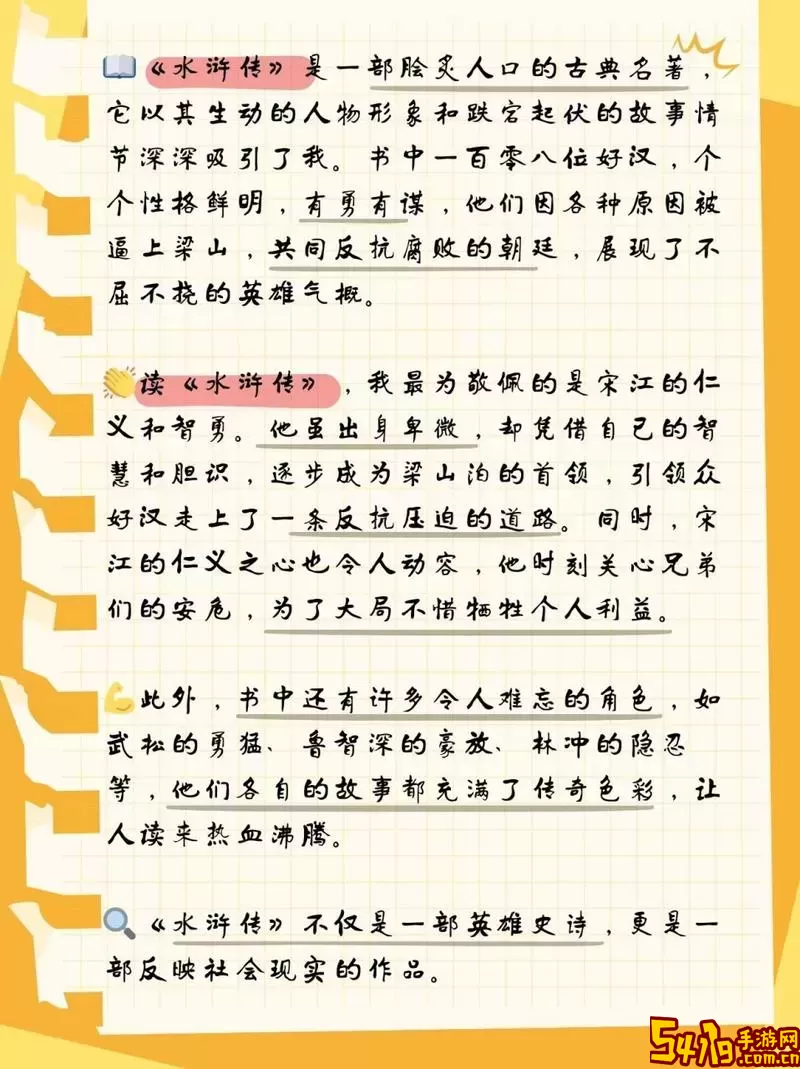 《水浒传》是一部脍炙人口的古典名著，
它以其生动的人物形象和跌宕起伏的故事情
节深深吸引了我。书中一百零八位好汉，个
个性格鲜明，有勇有谋，他们因各种原因被
逼上梁山，共同反抗腐败的朝廷，展现了不
屈不挠的英雄气概。
读《水浒传》，我最为敬佩的是宋江的仁
义和智勇。他虽出身卑微，却凭借自己的智
慧和胆识，逐步成为梁山泊的首领，引领众
好汉走上了一条反抗压迫的道路。同时，宋
江的仁义之心也令人动容，他时刻关心兄弟
们的安危，为了大局不惜牺牲个人利益。
此外，书中还有许多令人难忘的角色，如
武松的勇猛、鲁智深的豪放、林冲的隐忍
等，他们各自的故事都充满了传奇色彩，让
人读来热血沸腾。
《水浒传》不仅是一部英雄史诗，更是一
部反映社会现实的作品。
5479手游网
.com.cn